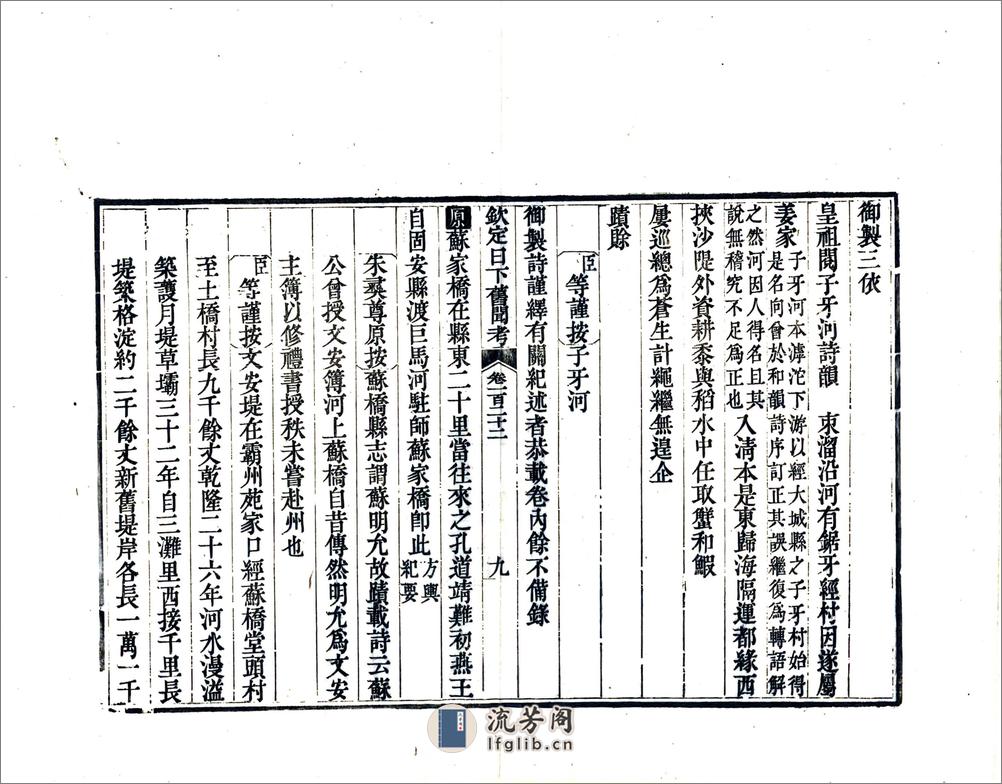 御製三依
皇祖閱子牙河詩韻　束溜沿河有鋸牙經村因遂屬
姜家子牙河本滹沱下游以經大城縣之子牙村始得
是名向曾於和韻詩序訂正其誤繼復為轉語解
之然河因人得名且其
說無稽究不足為正也入淸本是東歸海隔運都緣西
挾沙隄外資耕黍與稻水中任取蟹和鰕
屢巡總為蒼生計繩繼無遑企
蹟賒
臣等謹按子牙河
御製詩謹繹有關紀述者恭載卷內餘不備錄
欽定日下舊聞考　卷一百二十二　九
原蘇家橋在縣東二十里當往來之孔道靖難初燕王
自固安縣渡巨馬河駐師蘇家橋卽此方輿
紀要
朱彝尊原按蘇橋縣志謂蘇明允故蹟載詩云蘇
公曾授文安簿河上蘇橋自昔傳然明允為文安
主簿以修禮書授秩未嘗赴州也
臣等謹按文安堤在霸州苑家口經蘇橋堂頭村
至土橋村長九千餘丈乾隆二十六年河水漫溢
築護月堤草壩三十二年自三灘里西接千里長
堤築格淀約二千餘丈新舊堤岸各長一萬一千
流芳阁
lfglib.cn